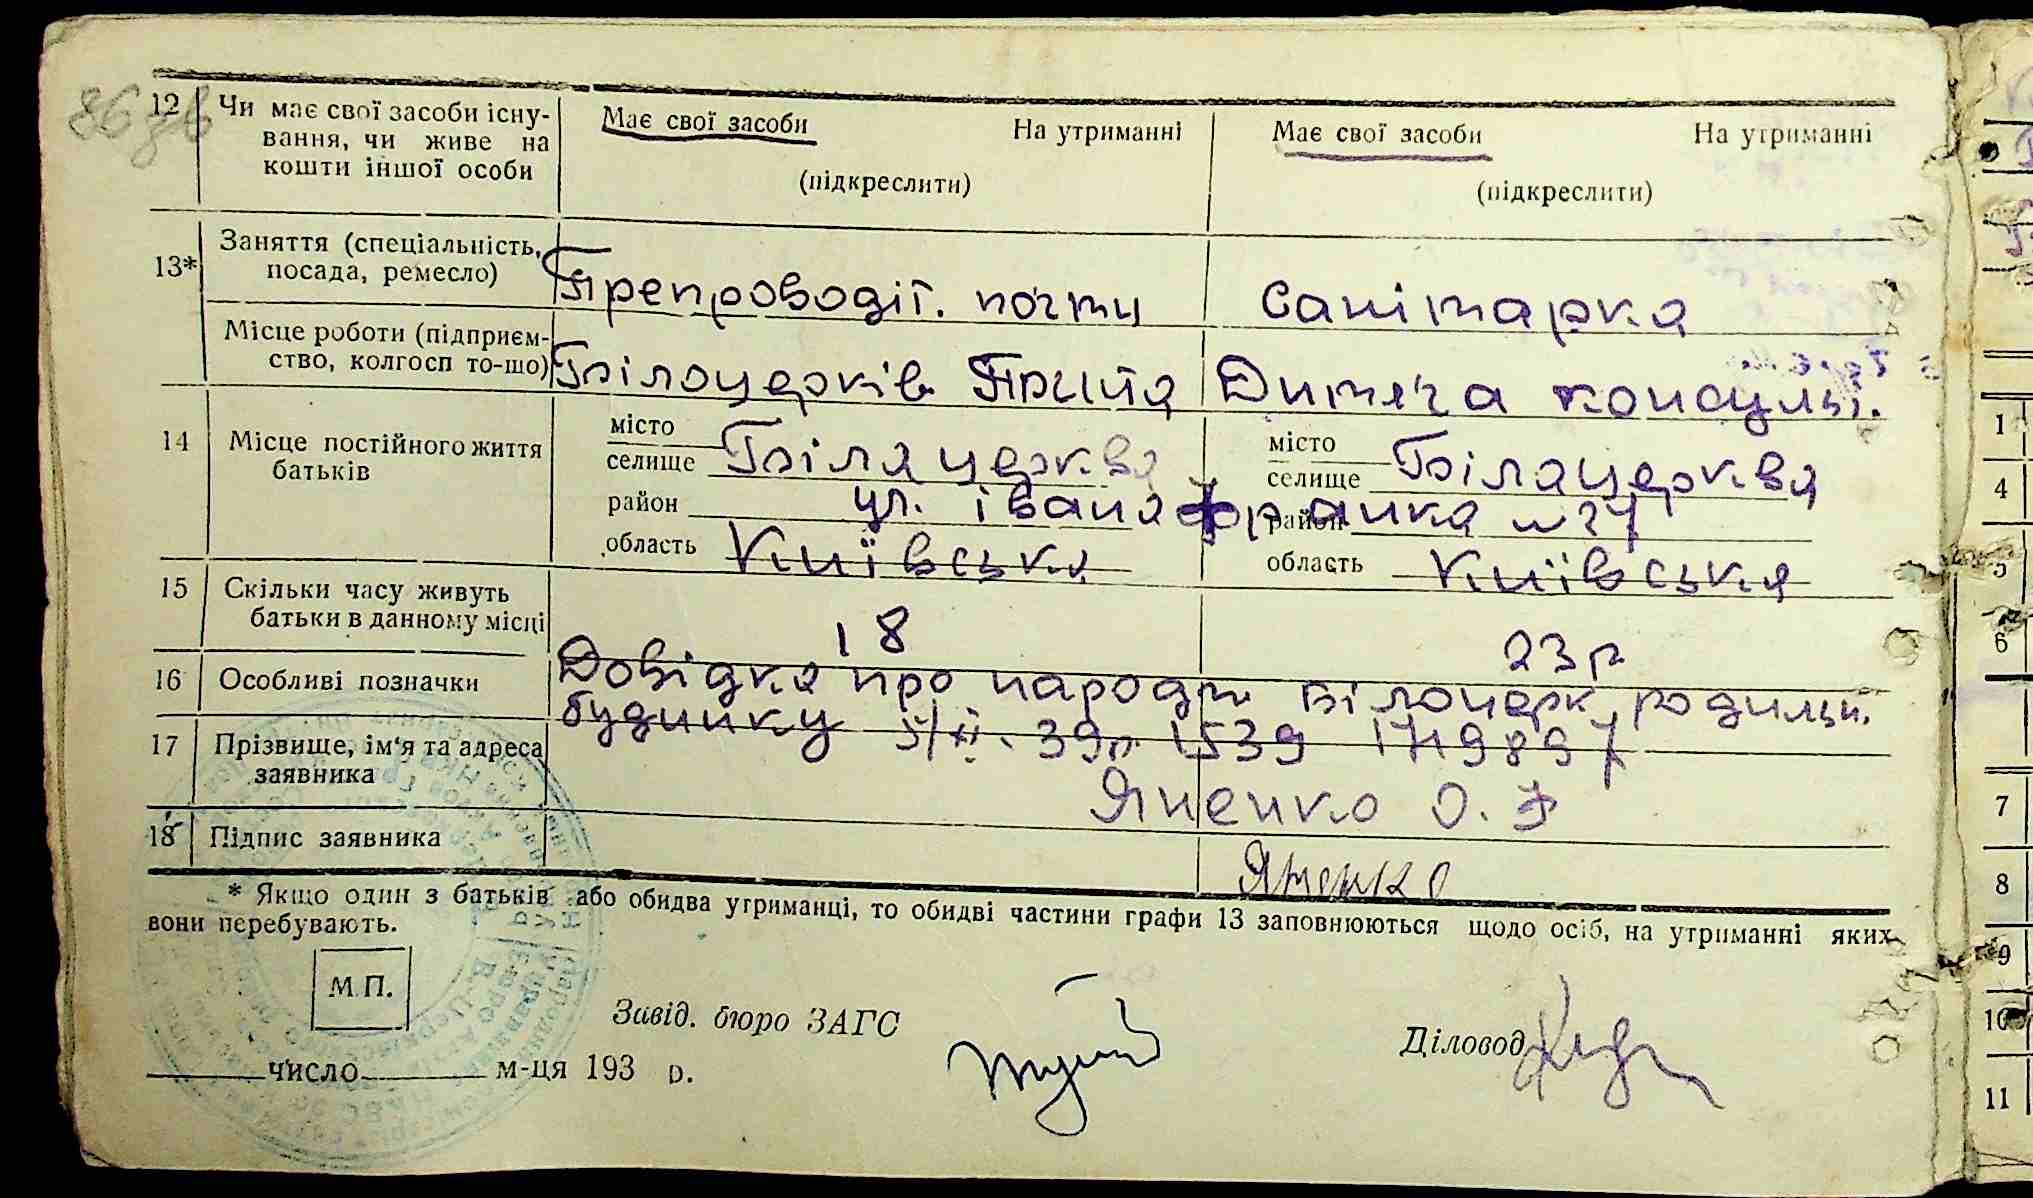 86 зв
12 Чи має свої засоби існу- Має свої засоби На утриманні Має свої засоби На утриманні
вання, чи живе на
кошти іншої особи (підкреслити) (підкреслити)
13* Заняття (спеціальність, посада, ремесло) Препроводіт. почти Санітарка
Місце роботи (підприєм-
ство, колгосп то-що) Білоцерків Дитяча консульт.
14 Місце постійного життя батьків місто селище Біла церква місто селище Білацерква
район ул. івана франка район № 27
область Київська область Київська
15 Скільки часу живуть
батьки в данному місці 18 23 р
16 Особливі позначки Довідка про народж Білоцерк родильн.
будинку 5/XII. 39р. 1539
17 Прізвище, ім'я та адреса
заявника Яненко О. Ф
18 Підпис заявника Яненко
* Якщо один з батьків або обидва утриманці, то обидві частини графи 13 заповнюються щодо осіб, на утриманні яких
вони перебувають.
М.П.
Завід. бюро ЗАГС Діловод
число м-ця 193 р.
1
4
5
6
7
8
9
10
11